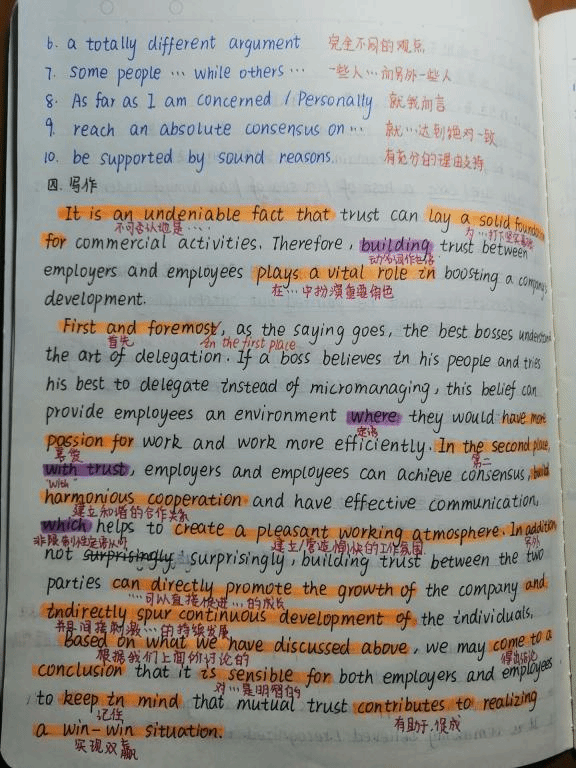 6. a totally different argument 完全不同的观点
7. some people … while others … 一些人…而另外一些人
8. As far as I am concerned / Personally 就我而言
9. reach an absolute consensus on … 就…达到绝对一致
10. be supported by sound reasons. 有充分的理由支持
四. 写作
It is an undeniable fact that trust can lay a solid foundation
不可否认地是…… 为…打下坚实基础
for commercial activities. Therefore, building trust between
动名词作主语
employers and employees plays a vital role in boosting a company's
在…中扮演重要角色
development.
First and foremost, as the saying goes, the best bosses understand
首先 /in the first place
the art of delegation. If a boss believes in his people and tries
his best to delegate instead of micromanaging, this belief can
provide employees an environment where they would have more
定语
passion for work and work more efficiently. In the second place,
喜爱 第二
with trust, employers and employees can achieve consensus, build
"with"
harmonious cooperation and have effective communication,
建立和谐的合作关系
which helps to create a pleasant working atmosphere. In addition
非限制性定语从句 建立/营造愉快的工作氛围 另外
not surprisingly surprisingly, building trust between the two
parties can directly promote the growth of the company and
…可以直接促进…的成长
indirectly spur continuous development of the individuals.
并且间接刺激…的持续发展
Based on what we have discussed above, we may come to a
根据我们上面所讨论的 得出结论
conclusion that it is sensible for both employers and employees
对…是明智的
to keep in mind that mutual trust contributes to realizing
记住 有助于,促成
a win-win situation.
实现双赢